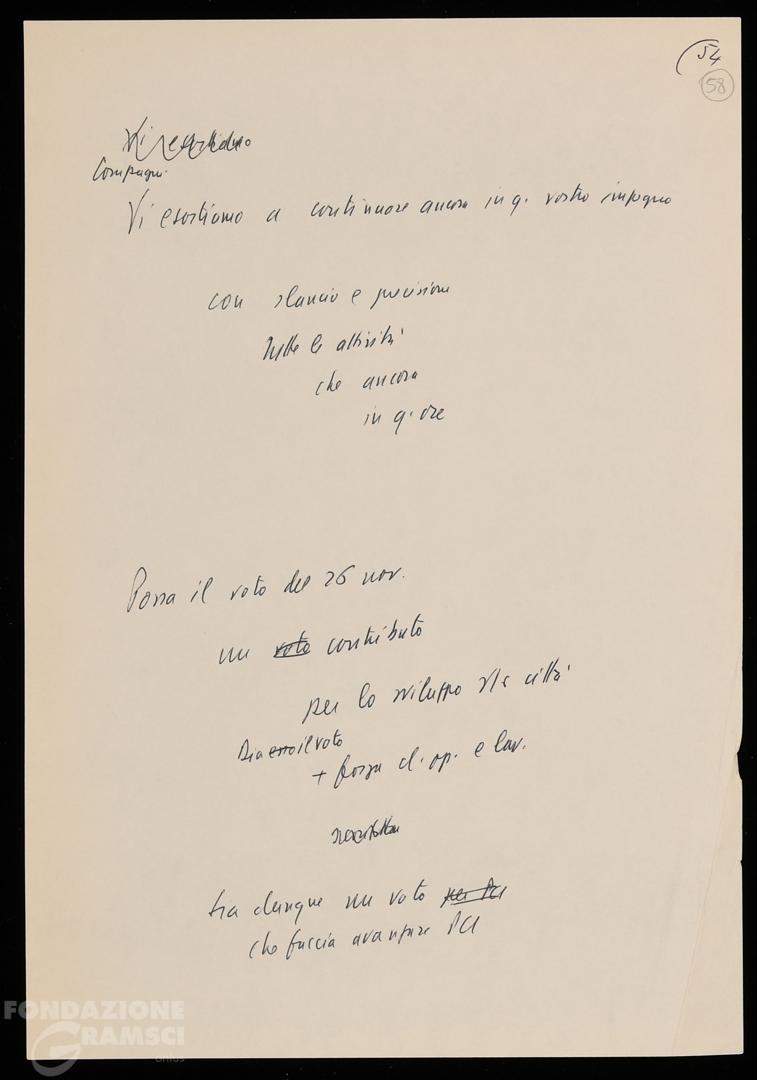 54
58
Compagni.
Vi esortiamo a continuare ancora in q. vostro impegno
con slancio e precisione
tutte le attività
che ancora
in q. ore
Possa il voto del 26 nov.
un voto contributo
per lo sviluppo città
Dia esso il voto
+ forza cl. op. e lav.
Sia dunque un voto per PCI
che faccia avanzare PCI
FONDAZIONE
GRAMSCI
onlus